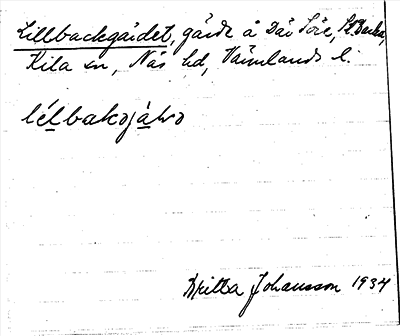 Lillbackgärdet, gärde å Där Söre, St. Backa,
Kila sn, Näs hd, Värmlands l.
lélbakojáɫɷ
Britta Johansson 1934